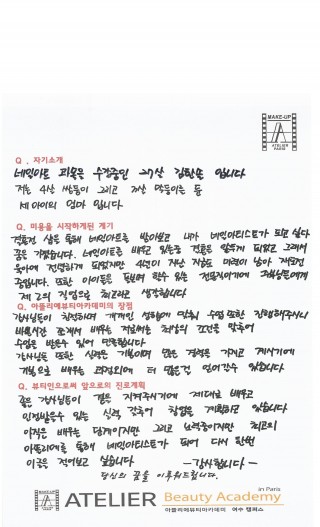 MAKE-UP
ATELIER
PARIS
Q . 자기소개
네일아트 과목은 수강중인 27살 김한솔 입니다
저는 4살 쌍둥이 그리고 2살 막둥이를 둔
세 아이의 엄마 입니다.
Q . 미용을 시작하게된 계기
결혼전 샵을 통해 네일아트를 받아보고 내가 네일아티스트가 되고 싶다
꿈을 가졌습니다. 네일아트를 배우고 있는중 결혼을 일찍하게 되었고 그래서
육아에 전념하게 되었지만 4년이 지난 지금도 미련이 남아 시작
했습니다. 또한 아이들을 돌보며 할수 있는 전문직이기에 주부님들에게
제 2의 직업으로 최고라고 생각합니다
Q . 아뜰리에뷰티아카데미의 장점
강사님들이 친절하며 개개인 성향에 맞춰 수업 또한 진행해주시니
바쁜시간 쪼개서 배우는 저로써는 최상의 조건을 맞추어
수업을 받을수 있어 만족합니다
강사님들 또한 실력은 기본이며 많은 경력을 가지고 계시기에
개인으로 배우는 과정외에 더 많은것 얻어갈수 있습니다
Q . 뷰티인으로써 앞으로의 진로계획
좋은 강사님들이 많은 지켜주시기에 제대로 배우고
인정받을수 있는 실력 갖추어 창업을 계획하고 있습니다
아직은 배우는 단계이지만 그리고 노력중이지만 최고의
아뜰리에를 통해 네일아티스트가 되어 다시 한번
이곳을 적어보고 싶습니다 -감사합니다-
당신의 꿈을 이루워드립니다.
MAKE-UP
ATELIER
PARIS
ATELIER Beauty Academy in Paris
아뜰리에뷰티아카데미 여수 캠퍼스